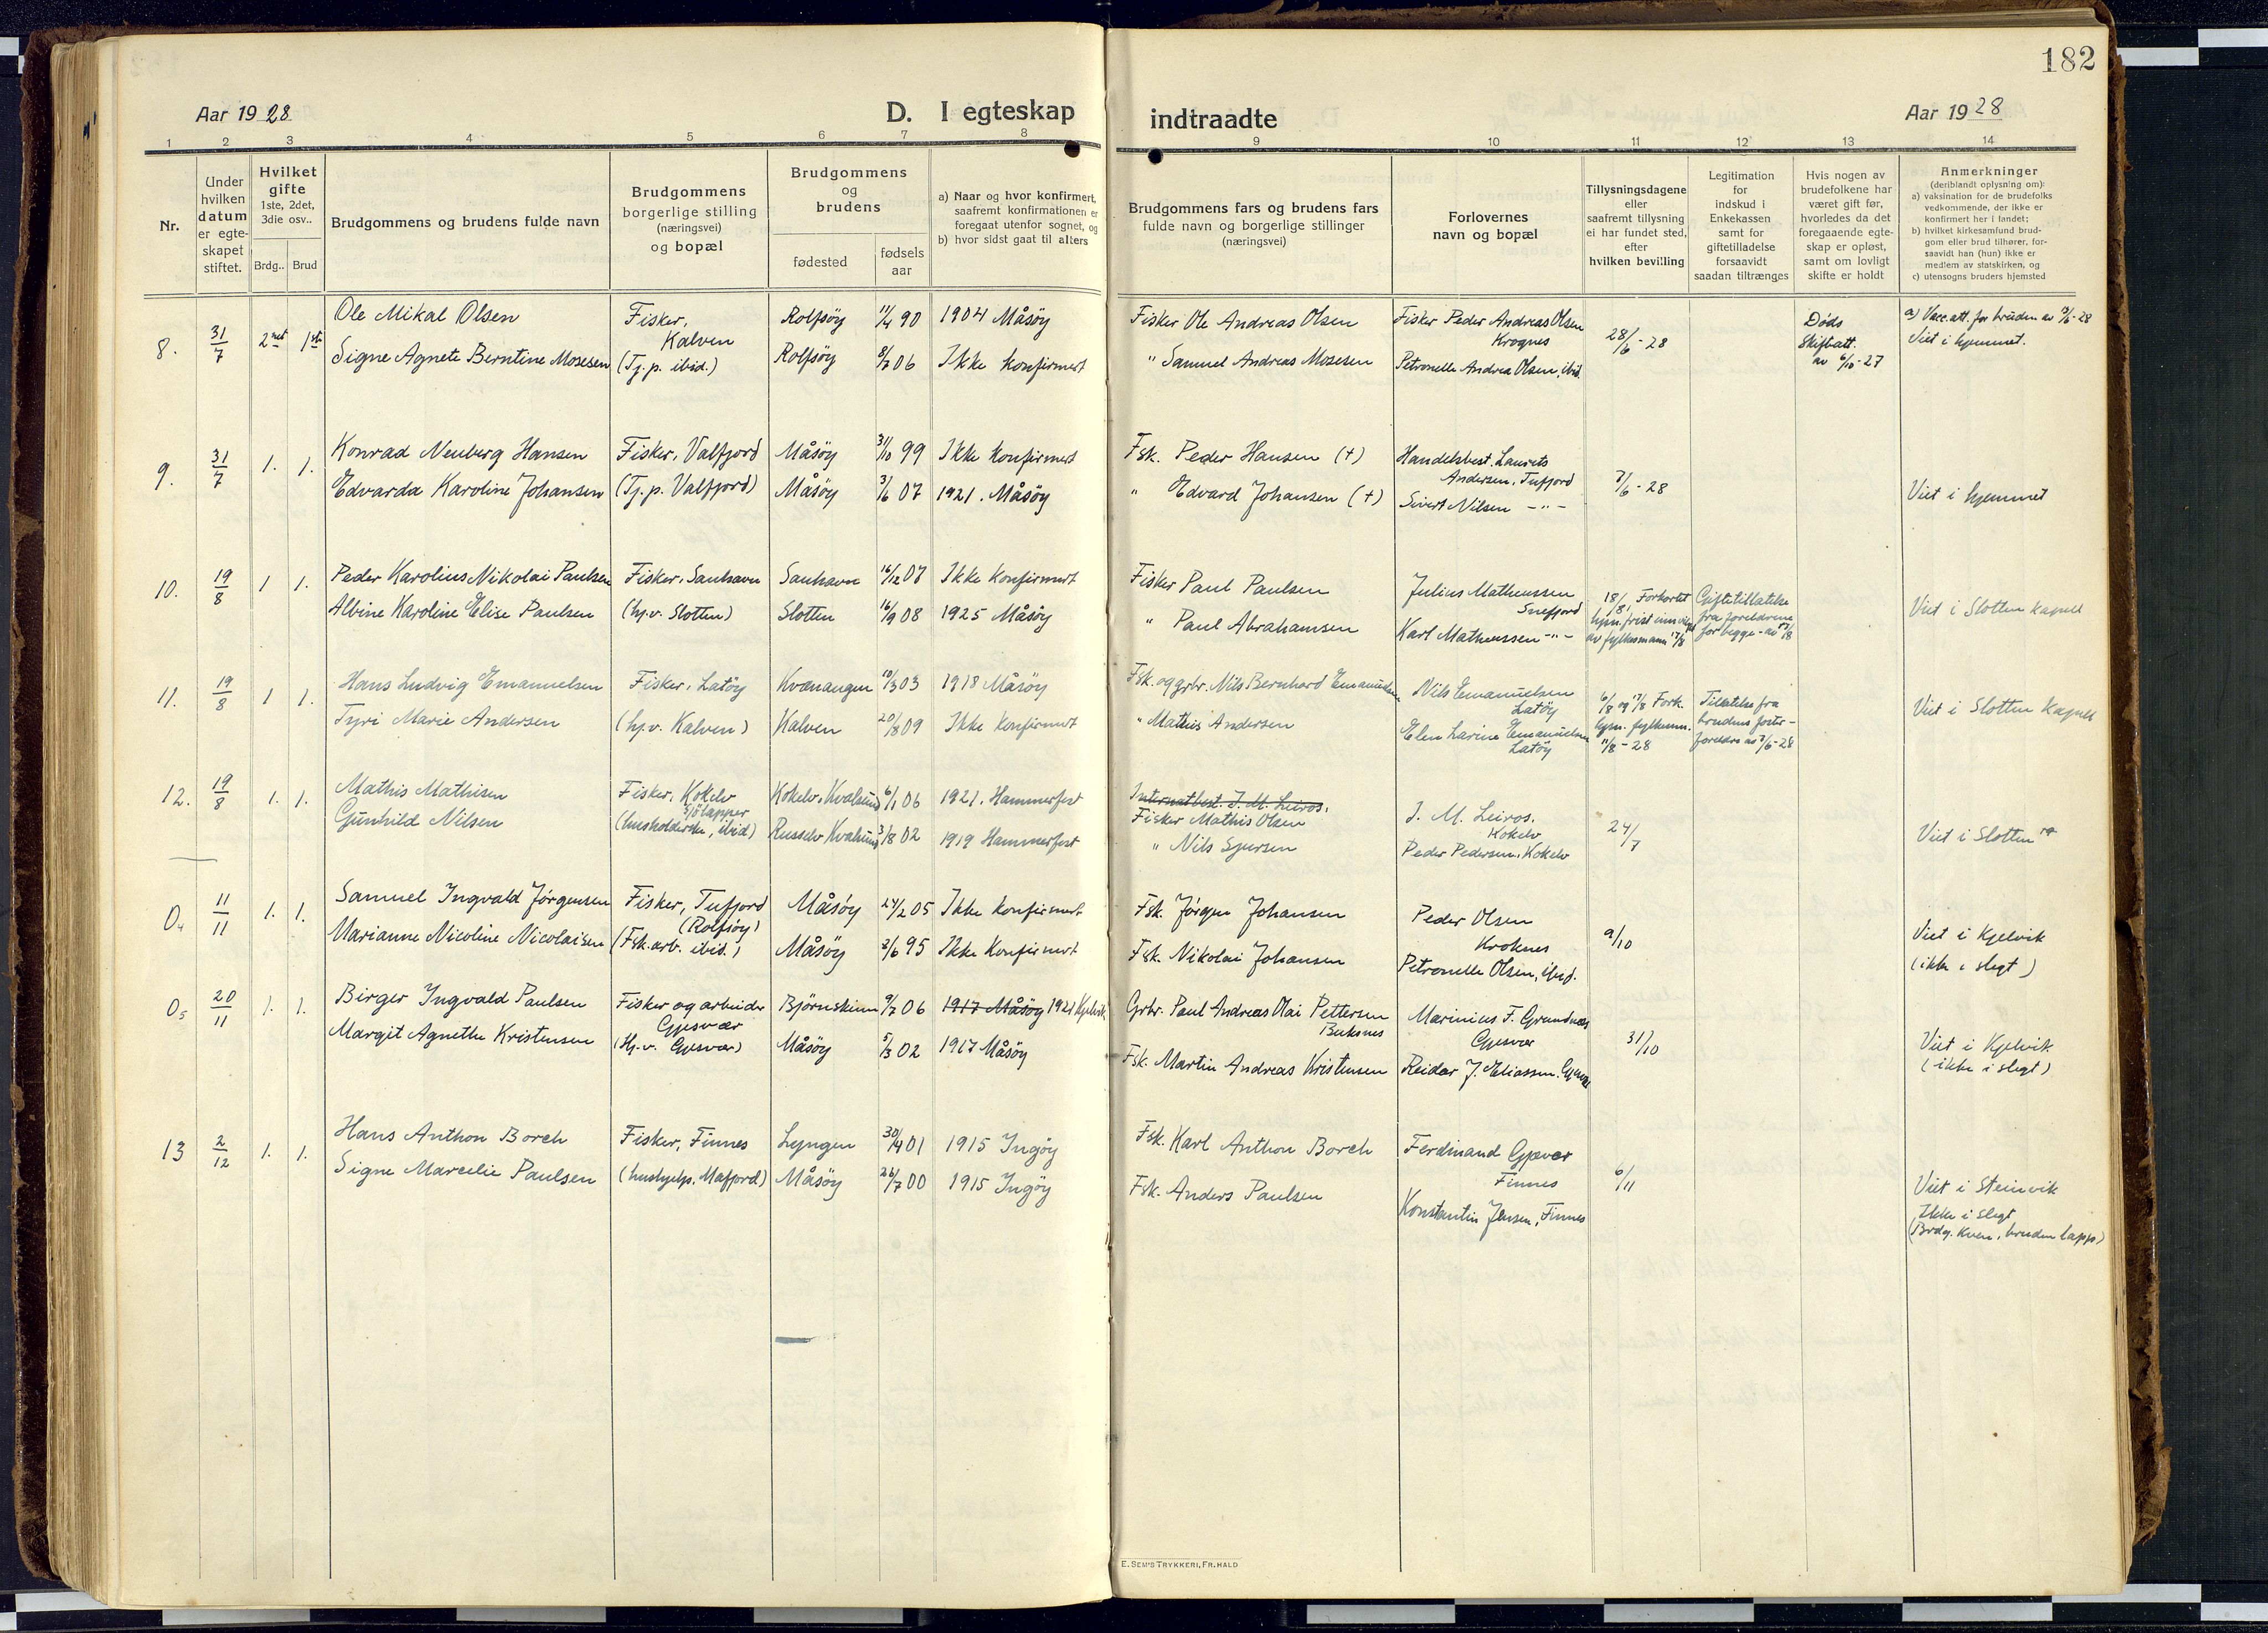 182
Aar 1928
D. I egteskap
indtraadte
Aar 1928
1 2 3 4 5 6 7 8 9 10 11 12 13 14
Nr.
Under hvilken datum er egteskapet stiftet.
Hvilket gifte 1ste, 2det, 3die osv..
Brdg.. Brud
Brudgommens og brudens fulde navn
Brudgommens borgerlige stilling (næringsvei) og bopæl
Brudgommens og brudens
fødested
fødsels aar
a) Naar og hvor konfirmert, saafremt konfirmationen er foregaat utenfor sognet, og
b) hvor sidst gaat til alters
Brudgommens fars og brudens fars fulde navn og borgerlige stillinger (næringsvei)
Forlovernes navn og bopæl
Tillysningsdagene eller saafremt tillysning ei har fundet sted, efter hvilken bevilling
Legitimation for indskud i Enkekassen samt for giftetilladelse forsaavidt saadan tiltrænges
Hvis nogen av brudefolkene har været gift før, hvorledes da det foregaaende egteskap er opløst, samt om lovligt skifte er holdt
Anmerkninger (deriblandt oplysning om):
a) vaksination for de brudefolks vedkommende, der ikke er konfirmert her i landet;
b) hvilket kirkesamfund brudgom eller brud tilhører, forsaavidt han (hun) ikke er medlem av statskirken, og
c) utensogns bruders hjemsted
8. 31/7 2net 1ste
Ole Mikal Olsen Fisker, Kalven Rolfsöy 11/4 90 1904 Måsöy
Signe Agnete Berntine Mosesen (Tj.p. ibid.) Rolfsöy 8/7 06 Ikke konfirmert
Fisker Ole Andreas Olsen Fisker Peder Andreas Olsen Krognes 28/6-28
" Samuel Andreas Mosesen Petronelle Andrea Olsen, ibid.
Døds Skifteatt. av 6/10-27
a) Vacc.att. for bruden av 10/6-28
Viet i hjemmet.
9. 31/7 1. 1.
Konrad Neuberg Hansen Fisker, Valfjord Måsöy 31/10 99 Ikke konfirmert
Edvarda Karoline Johansen (Tj.p. Valfjord) Måsöy 3/6 07 1921. Måsöy
Fsk. Peder Hansen (+) Handelsbest. Laurits Andersen, Tufjord 7/6-28
" Edvard Johansen (+) Sivert Nilsen -"-
Viet i hjemmet
10. 19/8 1 1.
Peder Karolius Nikolai Paulsen Fisker, Sanhavn Sanhavn 16/12 07 Ikke konfirmert
Albine Karoline Elise Paulsen (hj.v. Slotten) Slotten 16/9 08 1925 Måsöy
Fisker Paul Paulsen Julius Matheussen Snefjord
" Paul Abrahamsen Karl Matheussen -"-
18/8, Forkortet lysn. frist innvilget av fylkesmann 17/8
Giftetillatelse fra foreldrene for begge - av 17/8
Viet i Slotten kapell
11. 19/8 1 1.
Hans Ludvig Emanuelsen Fisker, Latöy Kvænangen 10/3 03 1918 Måsöy
Tyri Marie Andersen (hj.v. Kalven) Kalven 20/8 09 Ikke konfirmert
Fsk. og grbr. Nils Bernhard Emanuelsen Nils Emanuelsen Latöy
" Mathis Andersen Elen Larine Emanuelsen Latöy
6/8 og 17/8 Fork. lysn. fylkesm. 11/8-28
Tillatelse fra brudens fosterforeldre av 7/6-28
Viet i Slotten kapell
12. 19/8 1. 1.
Mathis Mathisen Fisker, Kokelv Kokelv, Kvalsund 6/1 06 1921. Hammerfest
Sjölapper
Gunhild Nilsen (husholderske, ibid) Russelv Kvalsund 3/8 02 1919 Hammerfest
Internatbest. J. M. Leiros.
Fisker Mathis Olsen J. M. Leiros. Kokelv 24/7
" Nils Sjursen Peder Pedersen, Kokelv
Viet i Slotten
04 11/11 1. 1.
Samuel Ingvald Jørgensen Fisker, Tufjord (Rolfsöy) Måsöy 24/2 05 Ikke konfirmert
Marianne Nicoline Nicolaisen (Fsk.arb. ibid.) Måsöy 2/6 95 Ikke konfirmert
Fsk. Jørgen Johansen Peder Olsen Kroknes 9/10
Fsk. Nikolai Johansen Petronelle Olsen, ibid.
Viet i Kjelvik
(ikke i slegt)
05 20/11 1. 1.
Birger Ingvald Paulsen Fisker og arbeider Gjesvær Björnskinn 9/7 06 1917 Måsöy 1921 Kjelvik
Margit Agnethe Kristensen (Hj.v. Gjesvær) Måsöy 5/3 02 1917 Måsöy
Grbr. Paul Andreas Olai Pettersen Buksnes Marinius F. Grundnæs Gjesvær 31/10
Fsk. Martin Andreas Kristensen Reidar J. Eliassen. Gjesvær
Viet i Kjelvik
(ikke i slegt)
13 2/12 1. 1.
Hans Anthon Borch Fisker, Finnes Lyngen 30/4 01 1915 Ingöy
Signe Marcelie Paulsen (hushjelp. Mafjord) Måsöy 26/7 00 1915 Ingöy
Fsk. Karl Anthon Borch Ferdinand Gjæver Finnes 6/11
Fsk. Anders Paulsen Konstantin Jensen, Finnes
Viet i Steinvik
Ikke i slegt
(Brdg. kven, bruden lapp)
E. SEM'S TRYKKERI, FR.HALD